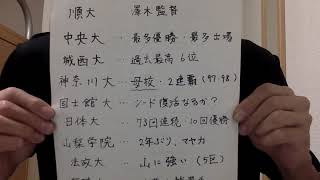 順大 … 澤木監督
中央大 … 最多優勝・最多出場
城西大 … 過去最高6位
神奈川大 … 母校・2連覇('97.'98)
国士舘大 … シード復活なるか?
日体大 … 73回連続・10回優勝
山梨学院 … 2年ぶり、マヤカ
法政大 … 山に強い(5区)